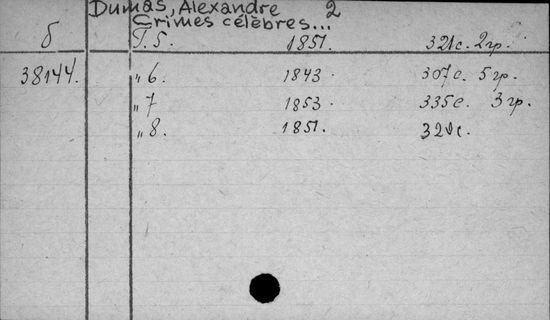 Dumas, Alexandre 2
Crimes célèbres...
б Т. 5. 1851. 321с. 2гр.
38144. „6. 1843. 307с. 5гр.
„7 1853. 335с. 3гр.
„8. 1851. с.